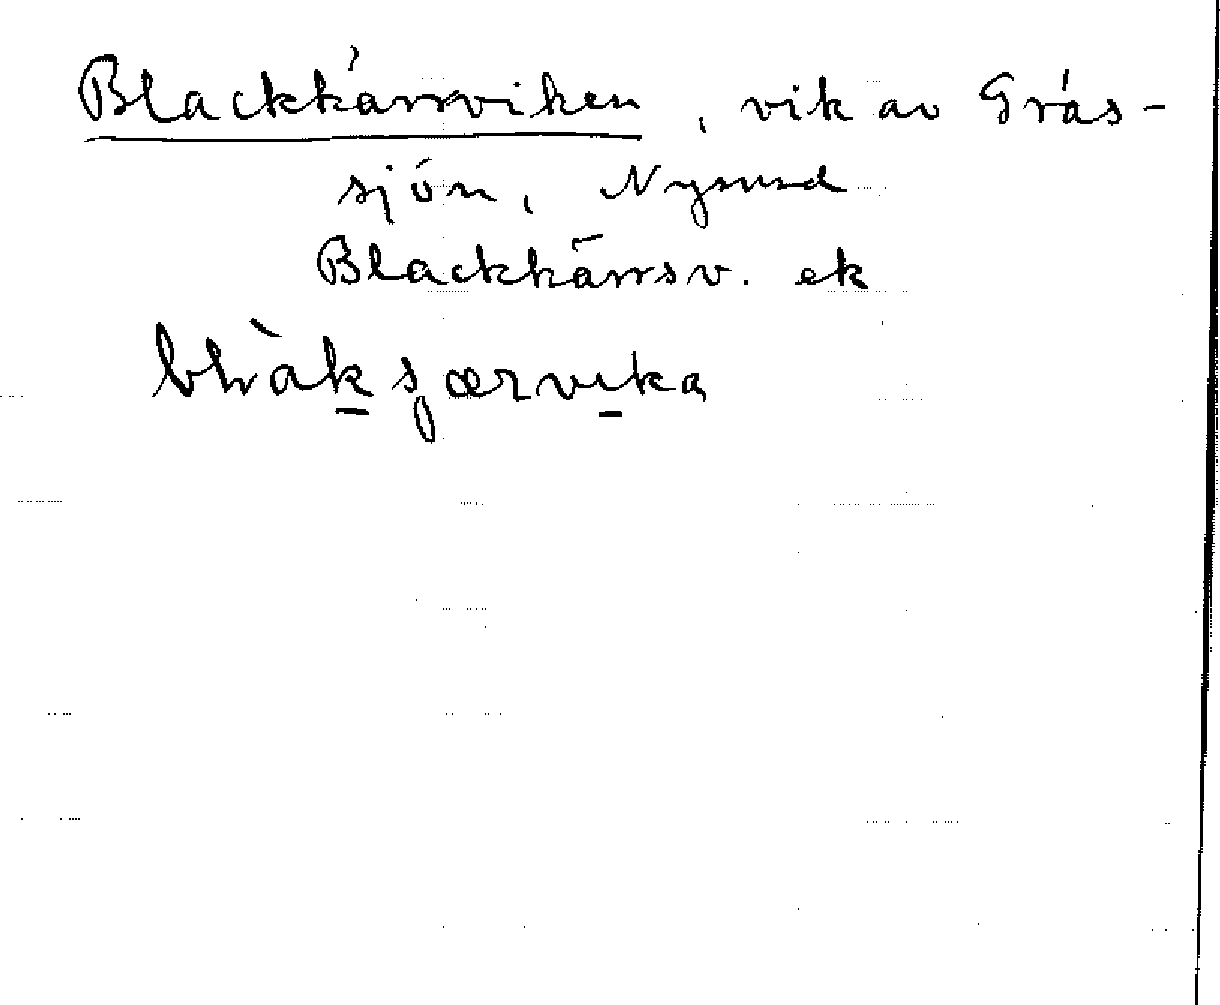 Blackkärrviken, vik av Gräs-
sjön, Nysund
Blackkärrsv. ek
blàkʂærvika